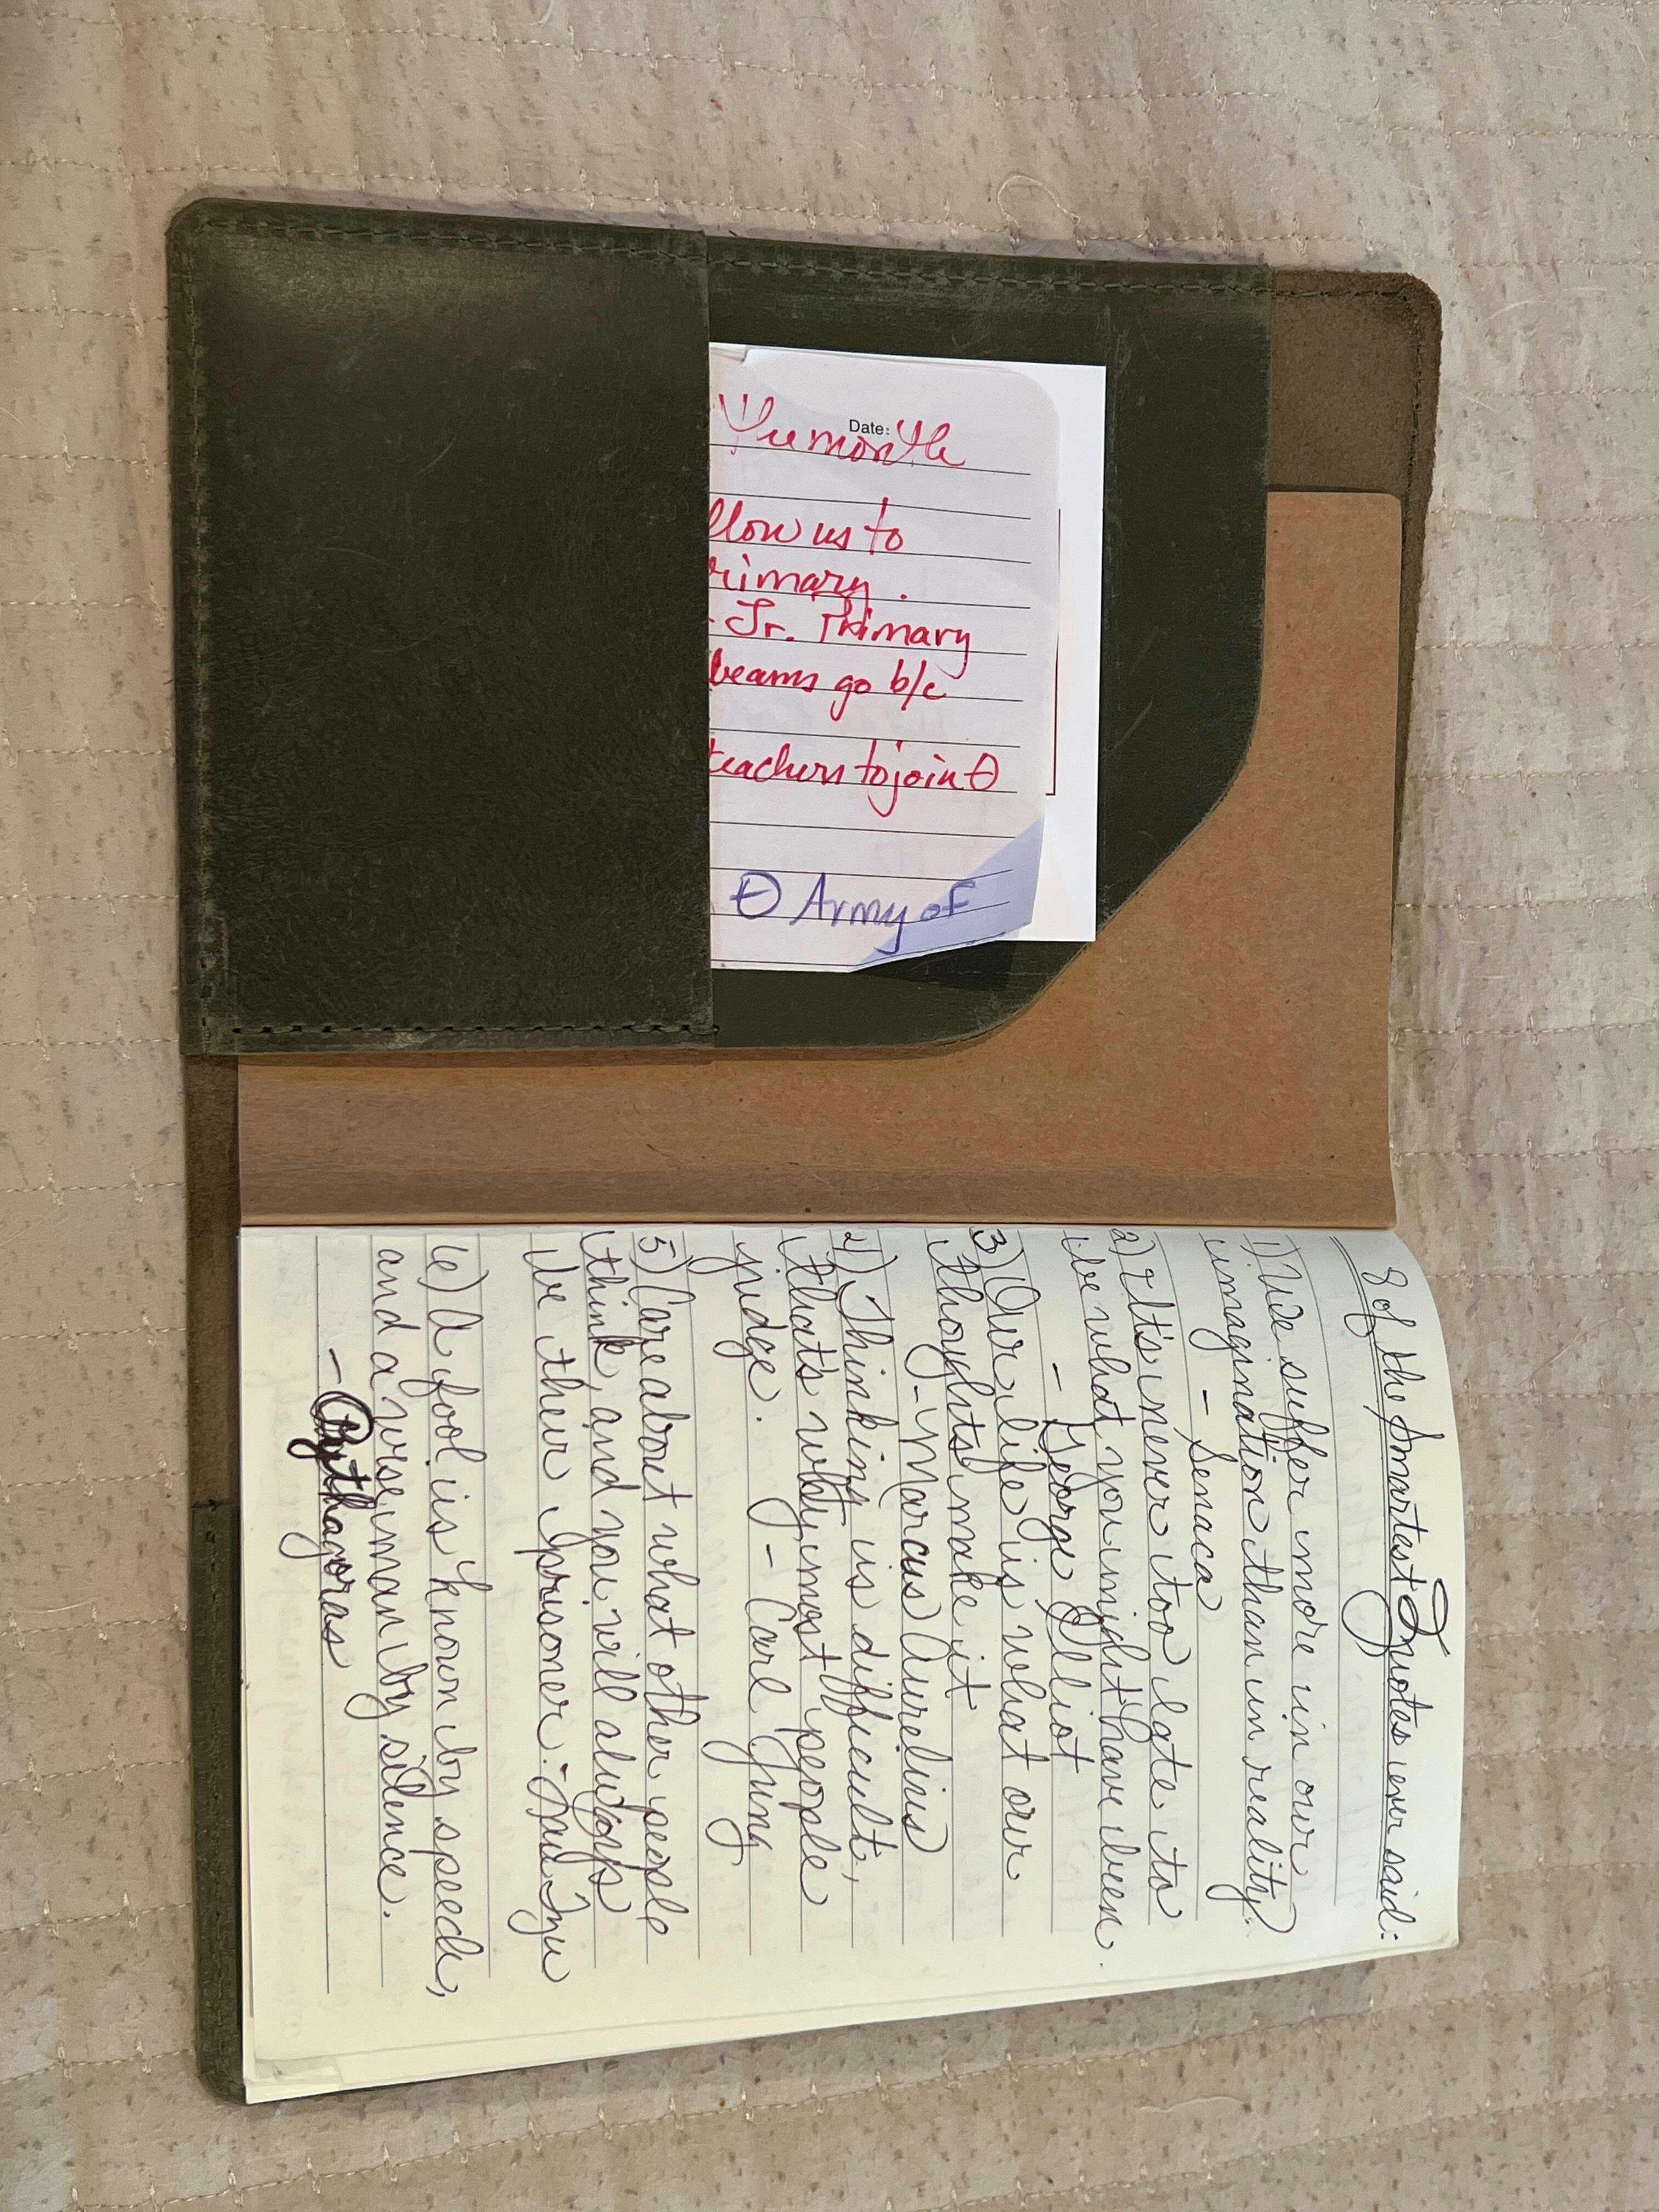 Date:
month
llow us to
rimary.
- Jr. Primary
beams go b/c
teachers to join θ
θ Army of
8 of the Smartest Quotes ever said:
1) We suffer more in our
imagination than in reality.
- Senaca
2) It's never too late to
be what you might have been.
- George Elliot
3) Our life is what our
thoughts make it
- Marcus Aurelius
4) Thinking is difficult,
that's why most people
judge. - Carl Jung
5) Care about what other people
think, and you will always
be their prisoner. - Lau Tzu
6) A fool is known by speech,
and a wise man by silence.
- Pythagoras